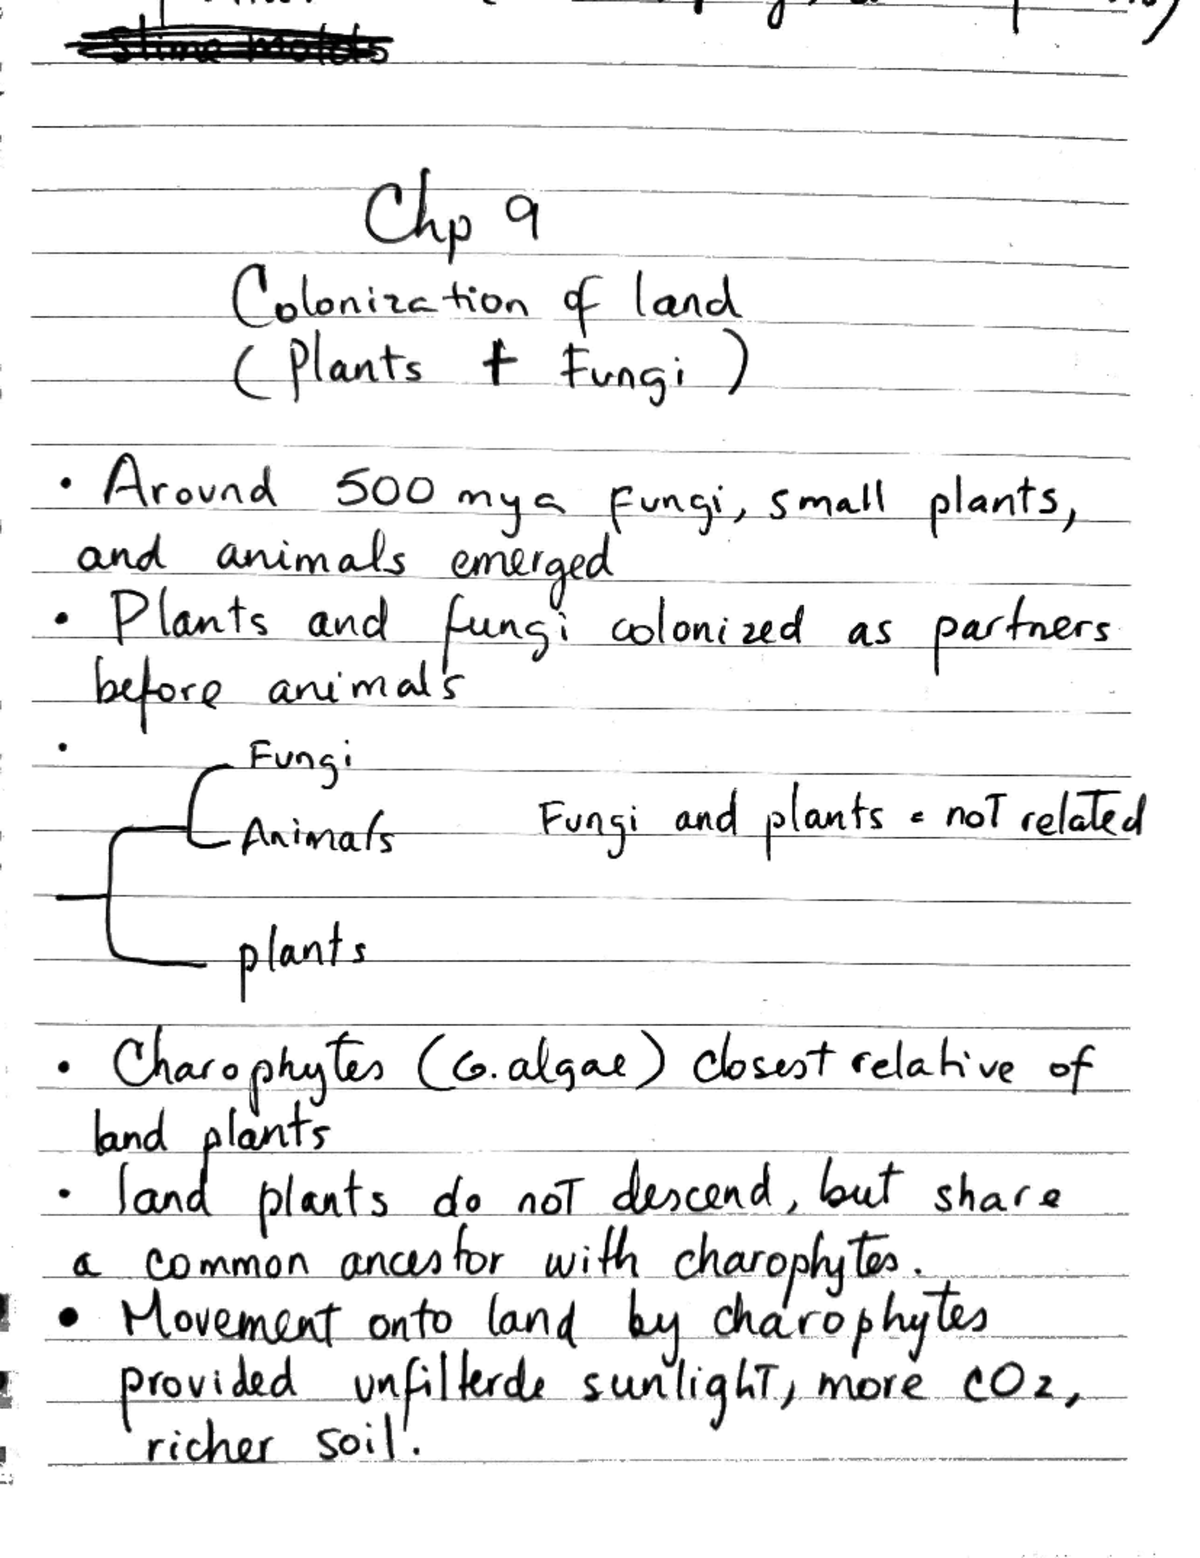 Slime molds
Chp 9
Colonization of land
(Plants + Fungi)
• Around 500 mya fungi, small plants,
and animals emerged
• Plants and fungi colonized as partners
before animals
•
Fungi
Animals
Fungi and plants = not related
plants
• Charophytes (G. algae) closest relative of
land plants
• land plants do not descend, but share
a common ancestor with charophytes.
• Movement onto land by charophytes
provided unfilterde sunlight, more CO2,
richer soil.